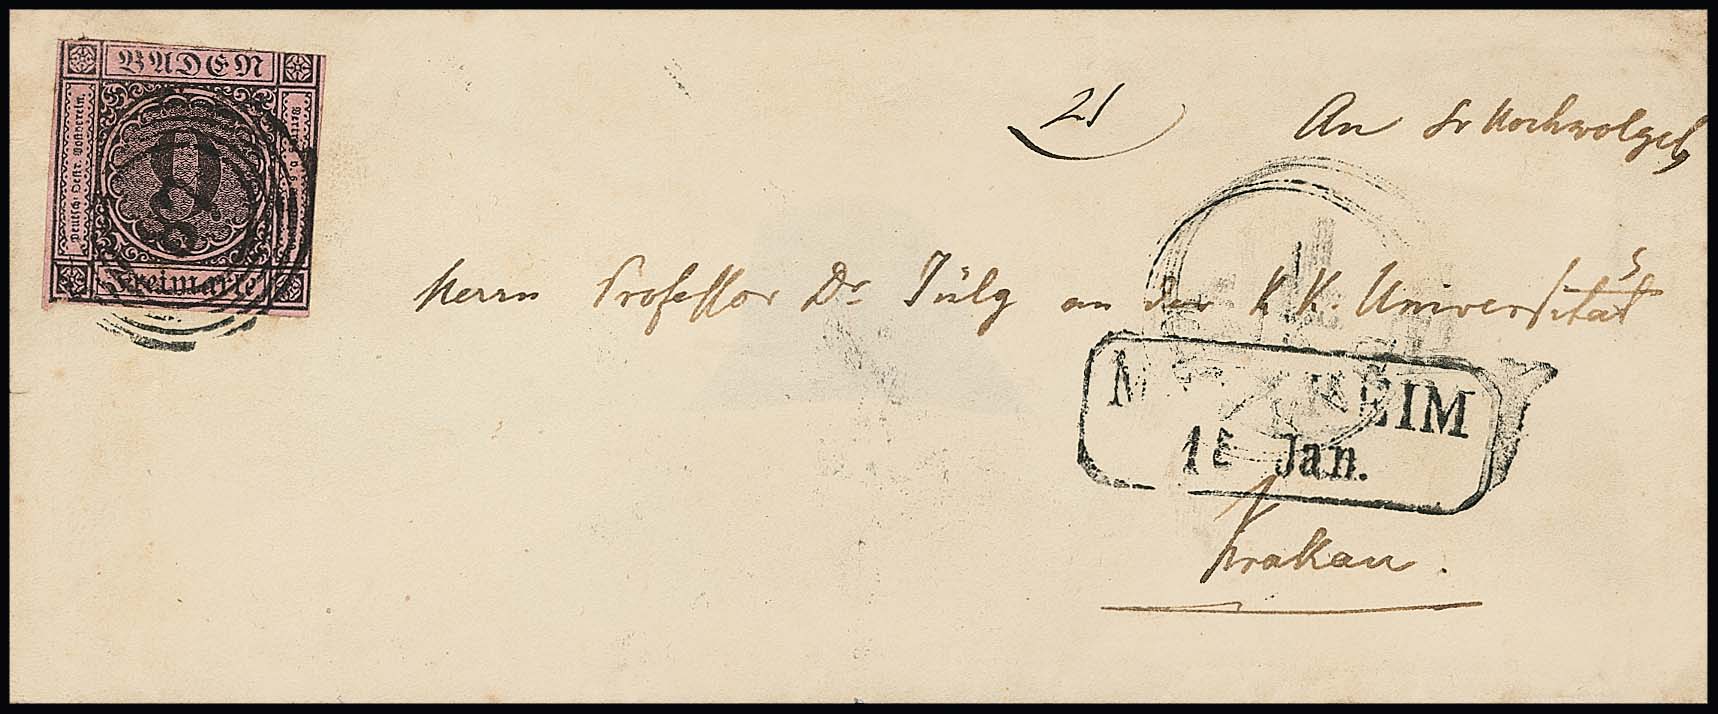 BADEN
Deutsch. Oestr. Postverein.
9
Freimarke
21
An Sr Hochwolgeb
Herrn Professor Dr Jülg an der K. K. Universität
M HEIM
15 Jan.
Krakau.